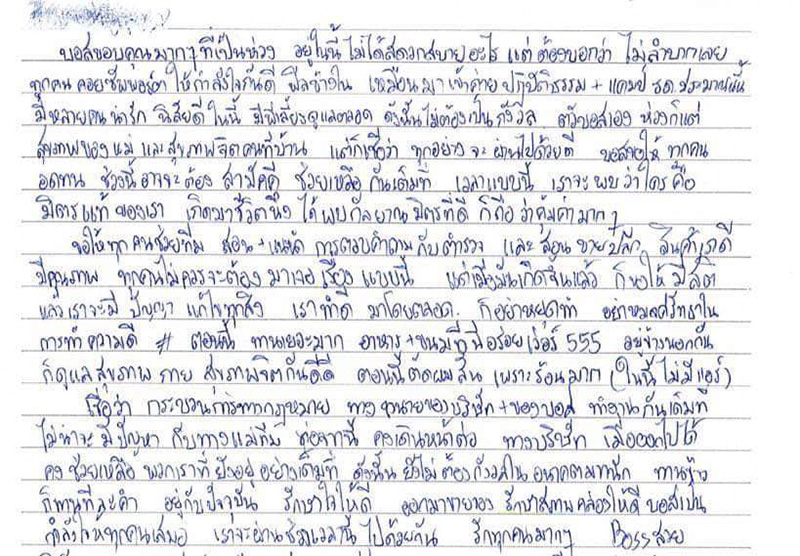 บอสขอบคุณมากๆ ที่เป็นห่วง อยู่ในนี้ ไม่ได้สดวกสบายอะไร แต่ ต้องบอกว่า ไม่ลำบากเลย
ทุกคน คอยซัพพอร์ต ให้กำลังใจกันดี ฟีลข้างใน เหมือนมาเข้าค่าย ปฏิบัติธรรม + แคมป์ รด. ประมาณนั้น
มีหลายคน น่ารัก นิสัยดี ในนี้ มีพี่เลี้ยงดูแลตลอด ดังนั้นไม่ต้องเป็นกังวล ตัวบอสเอง ห่วงก็แต่
สุขภาพของแม่ และสุขภาพจิต คนที่บ้าน แต่ก็เชื่อว่า ทุกอย่าง จะ ผ่านไปด้วยดี บอสขอให้ ทุกคน
อดทน ช่วงนี้ อาจจะต้อง สามัคคี ช่วยเหลือ กันเต็มที่ เวลาแบบนี้ เราจะ พบ ว่า ใคร คือ
มิตรแท้ ของเรา เกิดมาชีวิตนึง ได้ พบ กัลยาณมิตรที่ดี ก็ถือ ว่าคุ้มค่ามากๆ
ขอให้ทุกคนช่วยทีม สอน + แนะนำ การตอบคำถาม กับ ตำรวจ และ สอน ขายปลีก สินค้าเราดี
มีคุณภาพ ทุกคนไม่ควรจะต้อง มาเจอ เรื่อง แบบนี้ แต่เมื่อมันเกิดขึ้นแล้ว ก็ขอให้ มีสติ
แล้วเราจะมี ปัญญา แก้ไขทุกสิ่ง เราทำดี มาโดยตลอด. ก็อย่าหยุดทำ อย่าหมดศรัทธาใน
การทำ ความดี # ตอนนี้ ทานเยอะมาก อาหาร + ขนมที่นี่อร่อย เว่อร์ 555 อยู่ข้างนอกกัน
ก็ดูแล สุขภาพ กาย สุขภาพจิตกันดีดี ตอนนี้ ตัดผมสั้น เพราะร้อนมาก (ในนี้ ไม่มีแอร์)
เชื่อว่า กระบวนการทางกฎหมาย ทาง ทนายของบริษัท + ของบอส ทำงาน กันเต็มที่
ไม่น่าจะ มีปัญหา กับทางแม่ทีม ต่อจากนี้ คงเดินหน้าต่อ ทางบริษัท เมื่อออกไปได้
คง ช่วยเหลือ พวกเราที่ ยังอยู่ อย่างเต็มที่ ดังนั้น ยังไม่ ต้อง กังวลใน อนาคตมากนัก ทานข้าว
ก็ทานทีละคำ อยู่กับปัจจุบัน รักษาใจให้ดี ออกมาขายของ รักษาสภาพคล่องให้ดี บอสเป็น
กำลังใจให้ทุกคนเสมอ เราจะผ่านช่วงเวลานี้ ไปด้วยกัน รักทุกคนมากๆ Bossสวย